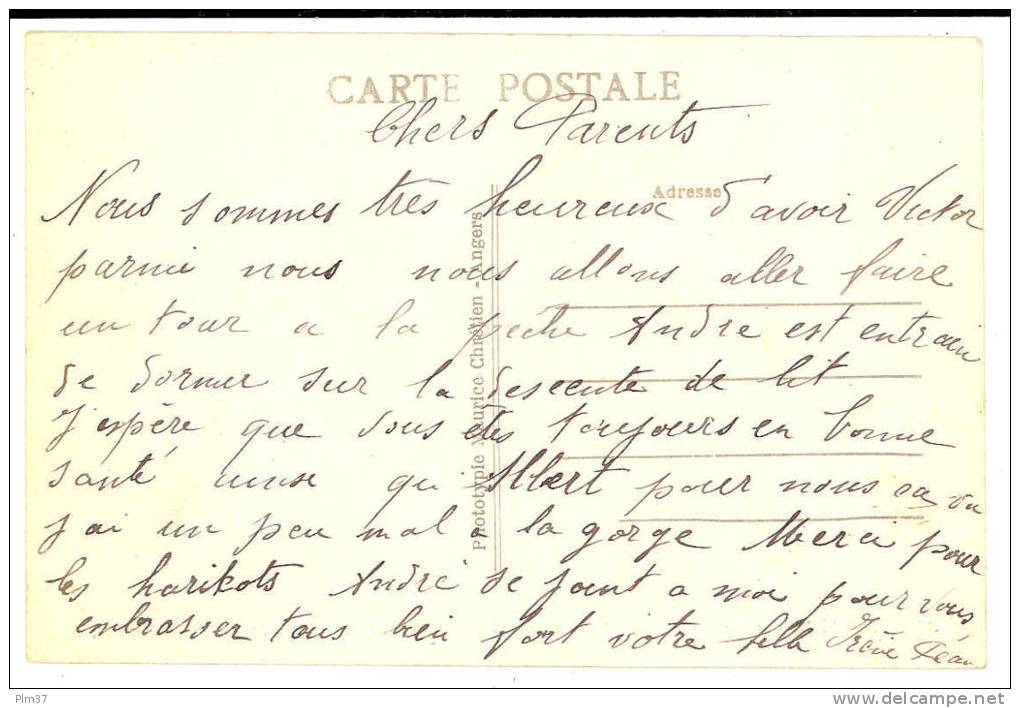 CARTE POSTALE
Chers Parents
Adresse
Nous sommes très heureux d'avoir Victor
parmi nous nous allons aller faire
un tour a la peche André est entrain
de dormir sur la descente de lit
J'espère que vous êtes toujours en bonne
santé ainse qu Albert pour nous ça va
j'ai un peu mal a la gorge Merci pour
les harikots André se joint a moi pour vous
embrasser tous bien fort votre fille Irène
Phototypie Maurice Chrétien - Angers
Plm37
delcampe.net